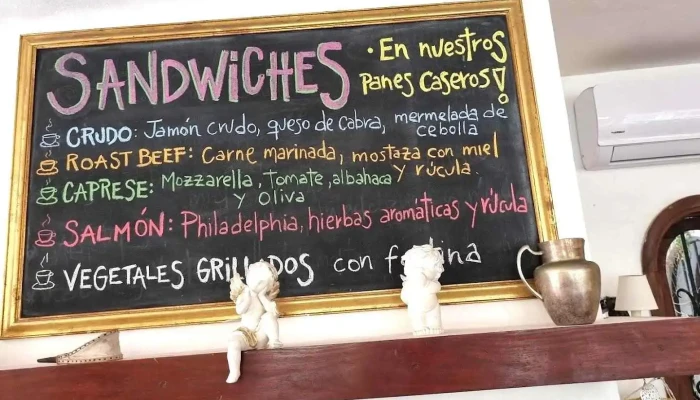 SANDWiCHES · En nuestros
Panes Caseros!
CRUDO: Jamón crudo, queso de cabra, mermelada de
cebolla
ROAST BEEF: Carne marinada, mostaza con miel
y rúcula.
CAPRESE: Mozzarella, tomate, albahaca
y oliva
SALMÓN: Philadelphia, hierbas aromáticas y rúcula
VEGETALES con